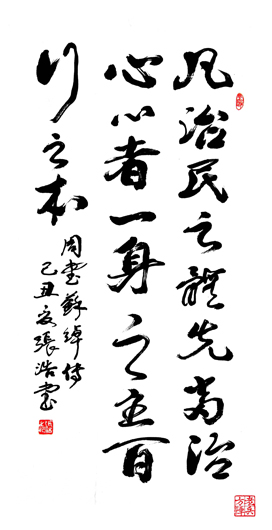 凡治民之體先當治
心心者一身之主百
行之本
周書蘇綽傳
己丑夏張浩書